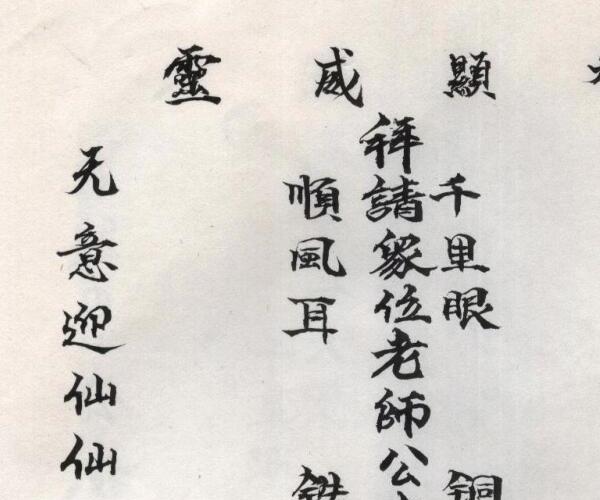 顯威靈
千里眼 銅
拜請衆位老師公
順風耳
无意迎仙仙